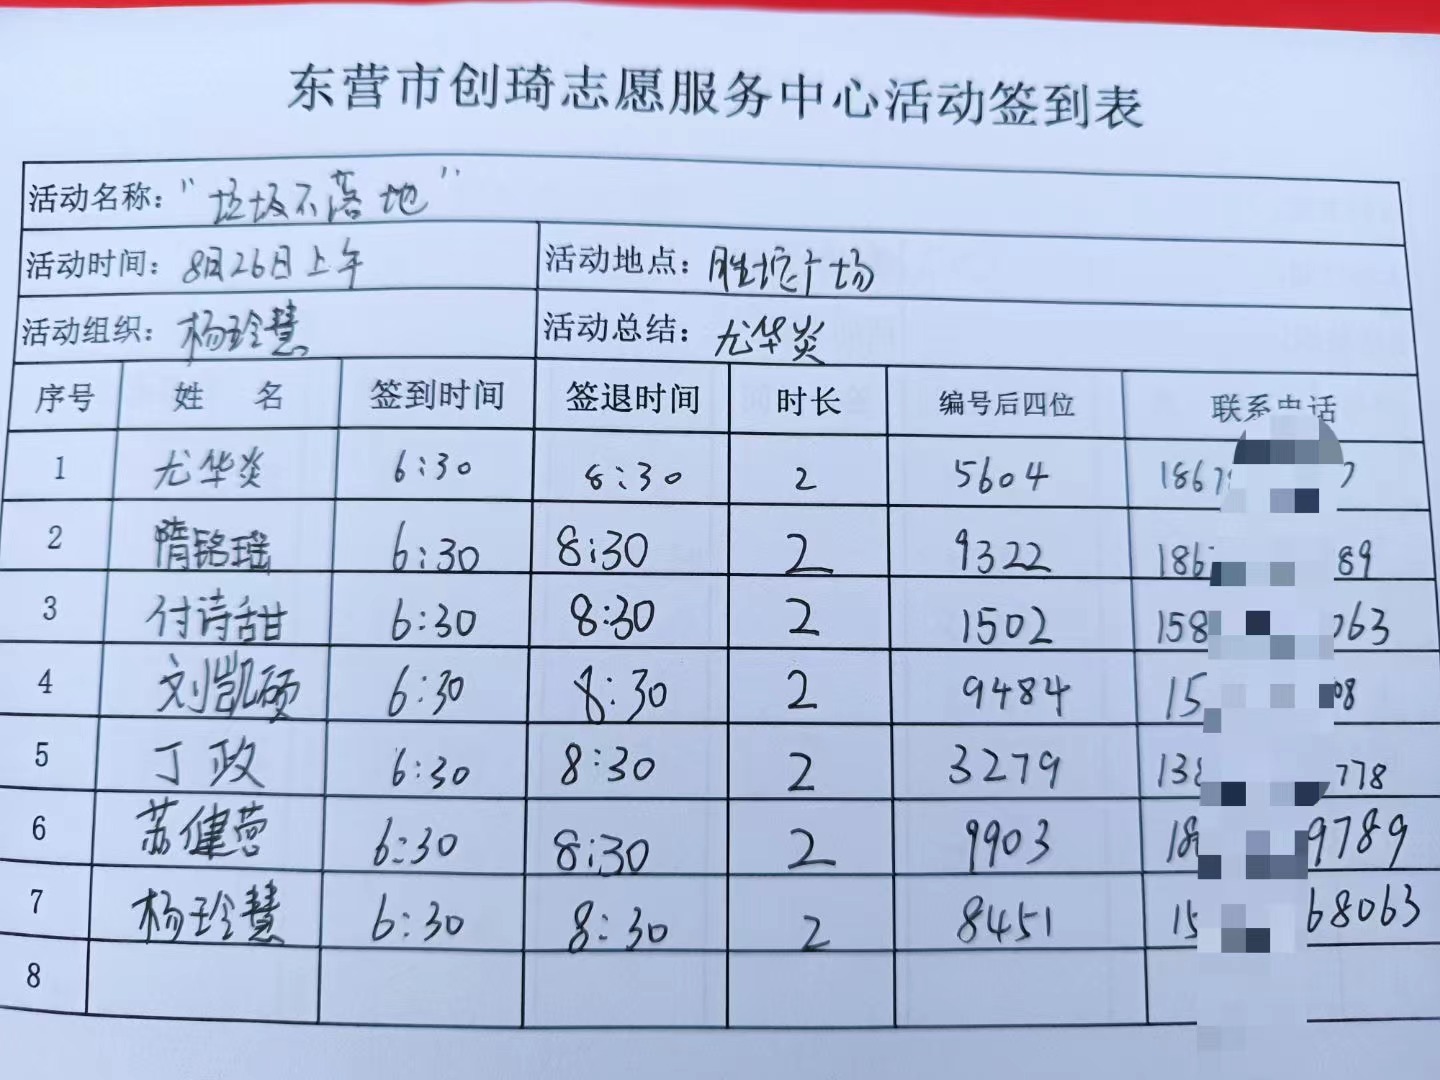 东营市创琦志愿服务中心活动签到表
活动名称：“垃圾不落地”
活动时间：8月26日上午 活动地点：胜坨广场
活动组织：杨玲慧 活动总结：尤华炎
序号 姓名 签到时间 签退时间 时长 编号后四位 联系电话
1 尤华炎 6:30 8:30 2 5604 1867 7
2 隋铭瑶 6:30 8:30 2 9322 186 89
3 付诗甜 6:30 8:30 2 1502 158 063
4 刘凯硕 6:30 8:30 2 9484 15 08
5 丁政 6:30 8:30 2 3279 138 778
6 苏健营 6:30 8:30 2 9903 18 9789
7 杨玲慧 6:30 8:30 2 8451 15 68063
8